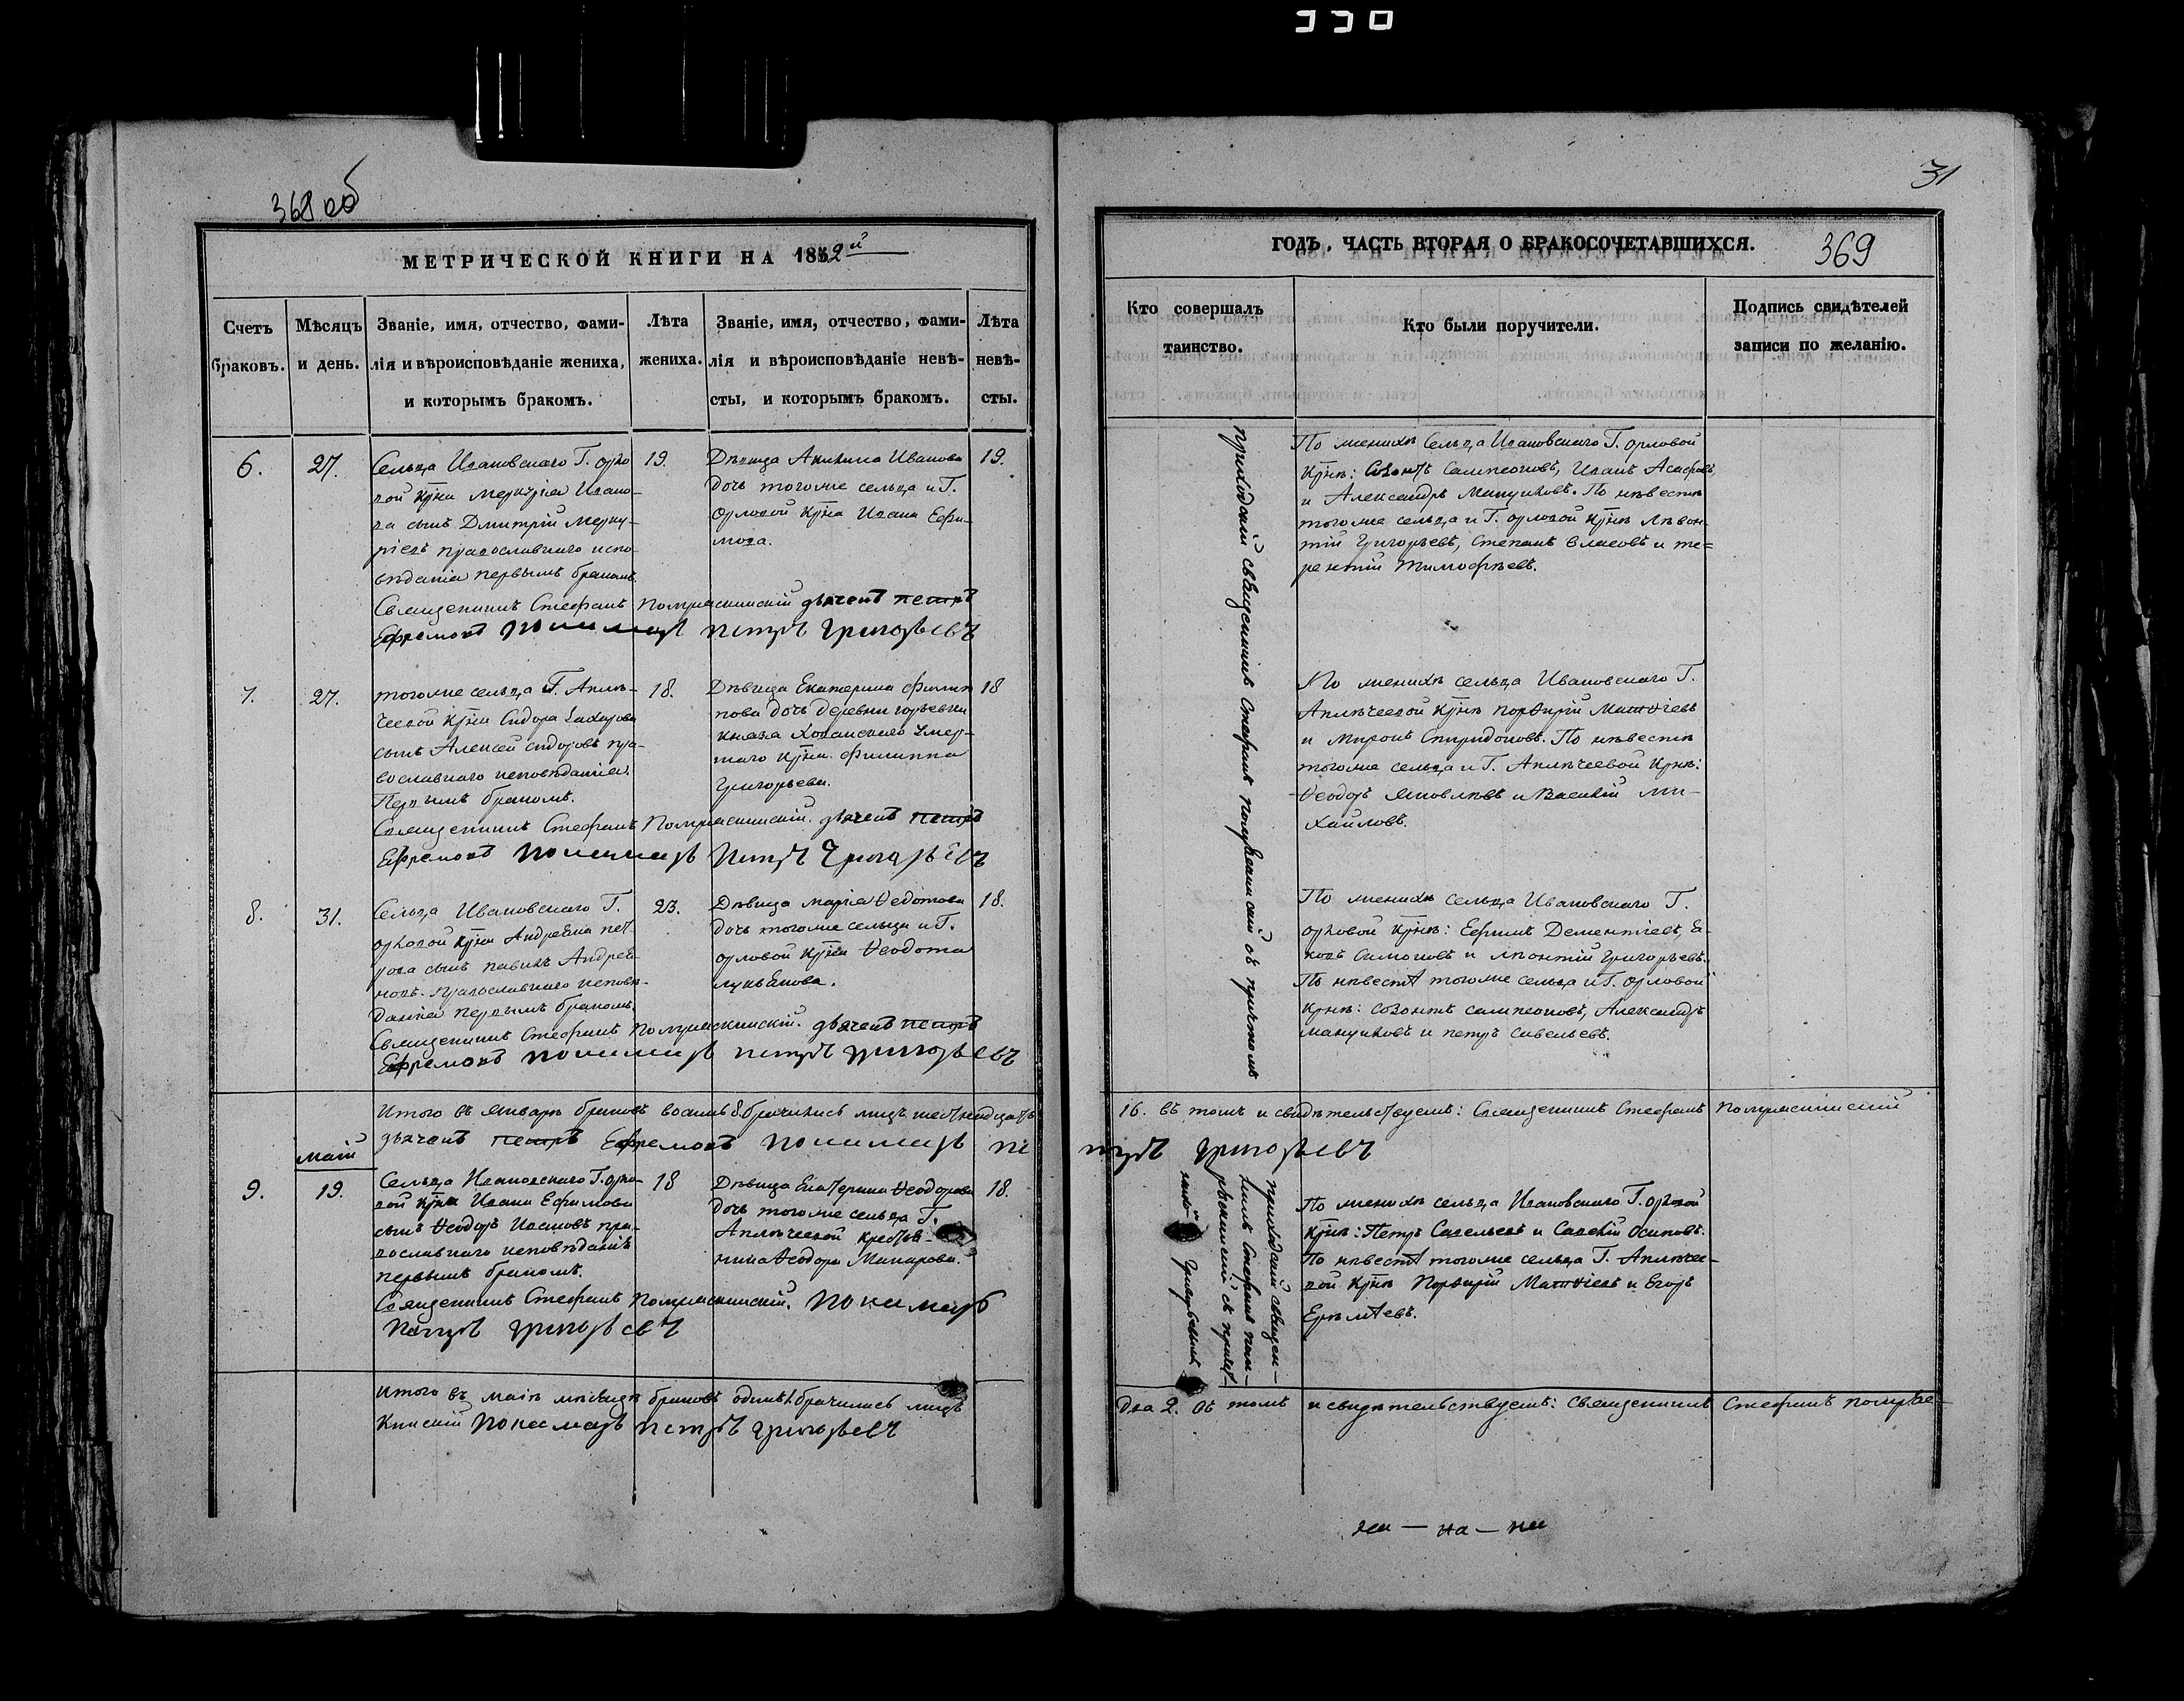 368 об
МЕТРИЧЕСКОЙ КНИГИ НА 1852й
Счетъ браковъ.
Мѣсяцъ и день.
Званіе, имя, отчество, фами-
лія и вѣроисповѣданіе жениха,
и которымъ бракомъ.
Лѣта
жениха.
Званіе, имя, отчество, фами-
лія и вѣроисповѣданіе невѣ-
сты, и которымъ бракомъ.
Лѣта
невѣ-
сты.
6.
27.
Сельца Ивановскаго Г. Орло
вой крⷭ҇на Меркурія Ивано-
ва сынъ Дмитрій Мерку-
ріевъ православнаго испо-
вѣданія первымъ бракомъ.
19.
Дѣвица Акилина Иванова
дочь тогоже сельца и Г.
Орловой крⷭ҇на Ивана Ефи-
мова.
19.
Священникъ Стефанъ дьячекъ петръ
Ефремовъ пономарь петръ григорьевъ
7.
27.
тогоже сельца Г. Аплѣ-
чеевой крⷭ҇на Сидора Захарова
сынъ Алексей Сидоровъ пра-
вославнаго исповѣданія.
Первымъ бракомъ.
18.
Дѣвица Екатерина Филип
пова дочь деревни Юрьевки
князя Хованскаго умер-
шаго крⷭ҇на Филиппа
Григорьева.
18
Священникъ Стефанъ дьячекъ петръ
Ефремовъ пономарь Петръ Григорьевъ
8.
31.
Сельца Ивановскаго Г.
Орловой крⷭ҇на Андреяна пет
рова сынъ павилъ Андрея-
новъ. православнаго исповѣ-
данія первымъ бракомъ.
23.
Дѣвица марія Ѳедотова
дочь тогоже сельца и Г.
Орловой крⷭ҇на Ѳеодота
лукьянова.
18.
Священникъ Стефанъ дьячекъ петръ
Ефремовъ пономарь петръ григорьевъ
Итого въ Январѣ браковъ восимь 8. брачились лицъ шестнадцать
дьячекъ петръ Ефремовъ пономарь пе
Маій
9.
19.
Сельца Ивановскаго Г. Орло-
вой крⷭ҇на Ивана Ефимова
сынъ Ѳеодоръ Ивановъ пра-
вославнаго исповѣданія
первымъ бракомъ.
18
Дѣвица Екатерина Ѳеодорова
дочь тогоже сельца Г.
Аплѣчеевой крестья-
нина Ѳеодора Макарова.
18.
Священникъ Стефанъ пономарь
Петръ григорьевъ
итого въ маіѣ мѣсяцѣ браковъ одинъ 1. брачились лицъ
кинскій пономарь петръ григорьевъ
31
ГОДЪ, ЧАСТЬ ВТОРАЯ О БРАКОСОЧЕТАВШИХСЯ.
369
Кто совершалъ
таинство.
Кто были поручители.
Подпись свидѣтелей
записи по желанію.
приходскій священникъ Стефанъ съ причтомъ
По женихѣ Сельца Ивановскаго Г. Орловой
крⷭ҇не: Созонтъ Сампсоновъ, Иванъ Асафовъ,
и Александръ Мануиловъ. По невѣстѣ
тогоже сельца и Г. Орловой крⷭ҇не Лѣвон-
тій Григорьевъ, Степанъ Власовъ и те=
рентій Тимофѣевъ.
По женихѣ сельца Ивановскаго Г.
Аплѣчеевой крⷭ҇не порѳирій Матѳіевъ
и Миронъ Спиридоновъ. По невѣстѣ
тогоже сельца и Г. Аплѣчеевой крⷭ҇не:
Ѳеодоръ Яковлевъ и Василій Ми-
хайловъ.
По женихѣ сельца Ивановскаго Г.
Орловой крⷭ҇не: Ефимъ Дементіевъ, Я-
ковъ Симоновъ и Леонтій Григорьевъ.
По невѣстѣ тогоже сельца и Г. Орловой
крⷭ҇не: Созонтъ сампсоновъ, Александръ
мануиловъ и петръ Савельевъ.
16. въ томъ и свидѣтельствуемъ: Священникъ Стефанъ
тръ григорьевъ
приходскій священ-
никъ Стефанъ пом-
съ причет-
никомъ Григорьевымъ
По женихѣ сельца Ивановскаго Г. Орловой
крⷭ҇не: Петръ Савельевъ и Савелій Осиповъ.
По невѣстѣ тогоже сельца Г. Аплѣчее-
вой крⷭ҇не Порѳирій Матѳіевъ и Егоръ
два 2. Въ томъ и свидѣтельствуемъ: Священникъ Стефанъ помряс-